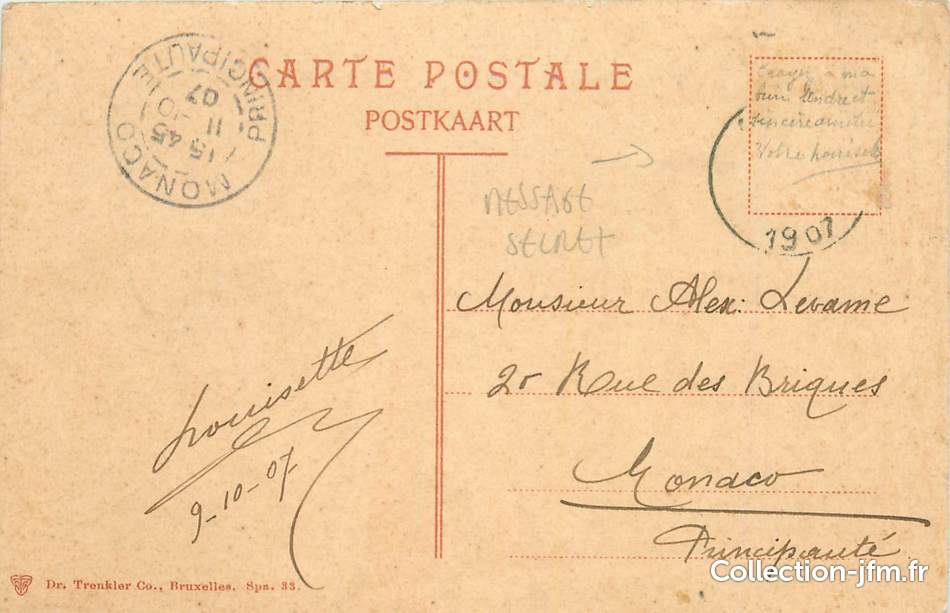 CARTE POSTALE
POSTKAART
MONACO
PRINCIPAUTÉ
15 45
11 -10
07
à ma
bien tendre et
sincère amitié
Votre Louisette
1907
MESSAGE
SECRET
Monsieur Alex: Levame
2r Rue des Briques
Monaco
Principauté
Louisette
9-10-07
Dr. Trenkler Co., Bruxelles. Spa. 33.
Collection-jfm.fr